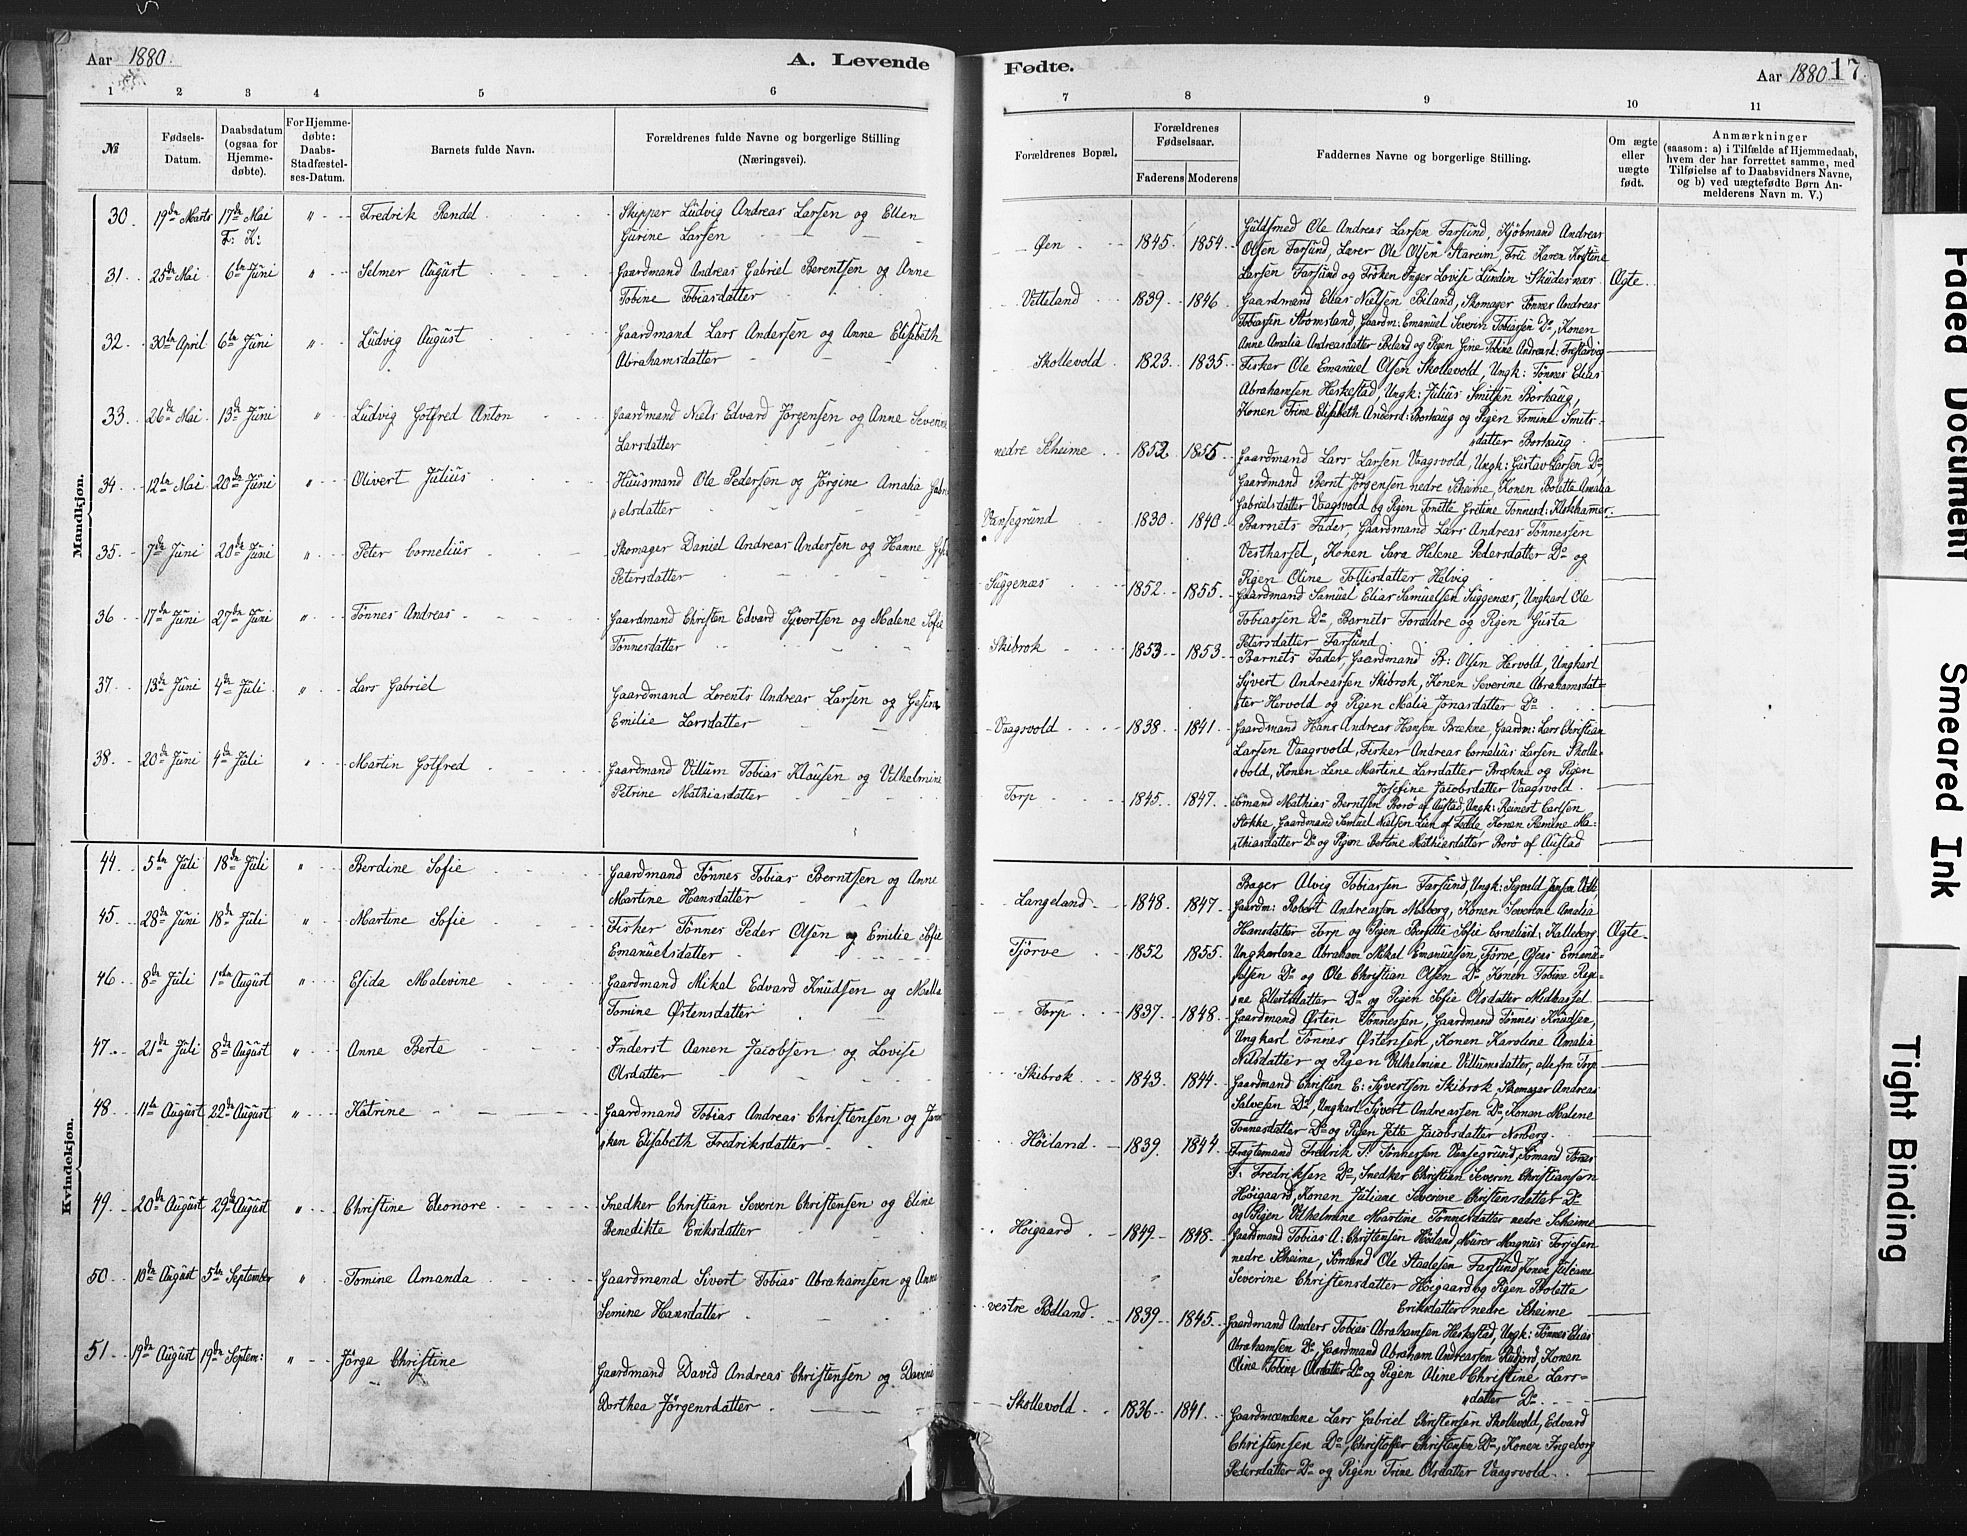 Aar 1880.
A. Levende
Fødte.
Aar 1880
17
1 2 3 4 5 6
7 8 9 10 11
№
Fødsels-Datum.
Daabsdatum (ogsaa for Hjemmedøbte).
For Hjemmedøbte: Daabs-Stadfæstelses-Datum.
Barnets fulde Navn.
Forældrenes fulde Navne og borgerlige Stilling (Næringsvei).
Forældrenes Bopæl.
Forældrenes Fødselsaar.
Faderens Moderens
Faddernes Navne og borgerlige Stilling.
Om ægte eller uægte født.
Anmærkninger
(saasom: a) i Tilfælde af Hjemmedaab, hvem der har forrettet samme, med Tilføielse af to Daabsvidners Navne, og b) ved uægtefødte Børn Anmelderens Navn m. V.)
Mandkjøn.
30. 19de Marts 17de Mai F: K: " Fredrik Rendel Skipper Ludvig Andreas Larsen og Ellen
Gurine Larsen
31. 25de Mai 6te Juni " Selmer August Gaardmand Andreas Gabriel Berentsen og Anne
Tobine Tobiasdatter
32. 30te April 6te Juni " Ludvig August Gaardmand Lars Andersen og Anne Elisabeth
Abrahamsdatter
33. 26de Mai 13de Juni " Ludvig Gotfred Anton Gaardmand Niels Edvard Jørgensen og Anne Severine
Larsdatter
34. 12te Mai 20de Juni " Olivert Julius Huusmand Ole Pedersen og Jørgine Amalia Gabri
elsdatter
35. 7de Juni 20de Juni " Peter Cornelius Skomager Daniel Andreas Andersen og Hanne
Petersdatter
36 17de Juni 27de Juni " Tønnes Andreas Gaardmand Christen Edvard Syvertsen og Malene Sofie
Tønnesdatter
37 13de Juni 4de Juli " Lars Gabriel Gaardmand Lorents Andreas Larsen og Gesine
Emilie Larsdatter
38. 20de Juni 4de Juli " Martin Gotfred Gaardmand Villum Tobias Klausen og Vilhelmine
Petrine Mathiasdatter
Kvindekjøn.
44. 5te Juli 18de Juli " Berdine Sofie Gaardmand Tønnes Tobias Berntsen og Anne
Martine Hansdatter
45. 28de Juni 18de Juli " Martine Sofie Fisker Tønnes Peder Olsen og Emilie Sofie
Emanuelsdatter
46 8de Juli 1ste August " Elida Malevine Gaardmand Mikal Edvard Knudsen og Malla
Tomine Østensdatter
47 21de Juli 8de August " Anne Berte Inderst Aanen Jacobsen og Lovise
Olsdatter
48 11te August 22de August " Katrine Gaardmand Tobias Andreas Christensen og Jann
iken Elisabeth Fredriksdatter
49. 20de August 29de August " Christine Eleonore Snedker Christian Severin Christensen og Eline
Benedikte Eriksdatter
50 10de August 5te September " Tomine Amanda Gaardmand Sivert Tobias Abrahamsen og Anne
Semine Hansdatter
51 19de August 19de Septem: " Jørga Christine Gaardmand David Andreas Christensen og Davine
Dorthea Jørgensdatter
Øen 1845 1854 Guldsmed Ole Andreas Larsen Farsund, Kjøbmand Andreas
Olsen Farsund, Lærer Ole Olsen Stareim, Frü Karen Kristine
Larsen Farsund og Frøken Inger Lovise Lundin Skudernæs Ægte
Vitteland 1839 1846 Gaardmand Elias Nielsen Beland, Skomager Tønnes Andreas
Tobiassen Strømsland, Gaardm: Emanuel Severin Tobiassen Do, Konen
Anne Amalia Andreasdatter Beland og Pigen Gine Tobine Andreasd: Frestadvig
Skollevold 1823 1835 Fisker Ole Emanuel Olsen Skollevold, Ungk: Tønnes Elias
Abrahamsen Herkestad, Ungk: Julius Smitsen Borhaug,
Konen Trine Elisabeth Andersd: Borhaug og Pigen Tomine Smits-
datter Borhaug
nedre Skeime 1852 1855 Gaardmand Lars Larsen Vaagsvold, Ungk: Gustav Larsen Do,
Gaardmand Bernt Jørgensen nedre Skeime, Konen Bolette Amalia
Gabrielsdatter Vaagsvold og Pigen Tonette Gretine Tønnesd: Klokhammer
Vansegrund 1830 1840 Barnets Fader, Gaardmand Lars Andreas Tønnessen
Vesthassel, Konen Sara Helene Pedersdatter Do og
Pigen Oline Tollisdatter Helvig
Siggenæs 1852 1855 Gaardmand Samuel Elias Samuelsen Siggenæs, Ungkarl Ole
Tobiassen Do Barnets Forældre og Pigen Gusta
Petersdatter Farsund
Skibrok 1853 1853 Barnets Fader, Gaardmand B: Olsen Hervold, Ungkarl
Syvert Andreassen Skibrok, Konen Severine Abrahamsdat-
ter Hervold og Pigen Malia Jonasdatter Do
Vaagsvold 1838 1841 Gaardmand Hans Andreas Hansen Brekne, Gaardm: Lars Christian
Larsen Vaagsvold, Fisker Andreas Cornelius Larsen Skolle-
vold, Konen Lene Martine Larsdatter Brekna og Pigen
Josefine Jacobsdatter Vaagsvold
Torp 1845 1847 Sømand Mathias Berntsen Borø af Austad, Ungk: Reinert Carlsen
Stokke, Gaardmand Samuel Nielsen Lien af Fedde Konen Remine Ma-
thiasdatter Do og Pigen Bertine Mathiasdatter Borø af Austad
Langeland 1848 1847 Bager Alvig Tobiassen Farsund, Ungk: Sigvald Jensen
Gaardm: Robert Andreassen Maberg, Konen Severine Amalia
Hansdatter Torp og Pigen Sofie Corneliusd: Kalleberg Ægte
Tjørve 1852 1855 Ungkarlene Abraham Mikal Emanuelsen Tjørve, Oseas Emanu-
elsen Do og Ole Christian Olsen Do Konen Tobine Regi-
ne Ellertsdatter Do og Pigen Sofie Olsdatter Midhassel
Torp 1837 1848 Gaardmand Østen Tønnessen, Gaardmand Tønnes Knudsen,
Ungkarl Tønnes Østensen, Konen Karoline Amalia
Nilsdatter og Pigen Vilhelmine Villumsdatter, alle fra Torp
Skibrok 1843 1844 Gaardmand Christen E: Syvertsen Skibrok, Skomager Andreas
Salvesen Do, Ungkarl Syvert Andreassen Do, Konen Malene
Tønnesdatter Do og Pigen Jette Jacobsdatter Norberg
Høiland 1839 1844 Fragtemand Fredrik F. Tønnessen Vansegrund, Sømand Tønnes
F: Fredriksen Do, Snedker Christian Severin Christiansen
Høigaard, Konen Juliane Severine Christensdatter Do
og Pigen Vilhelmine Martine Tønnesdatter nedre Scheime
Høigaard 1849 1848 Gaardmand Tobias A: Christensen Høiland, Murer Magnus Torjesen
nedre Skeime, Sømand Ole Staalesen Farsund, Konen Juliane
Severine Christensdatter Høigaard og Pigen Bolette
Eriksdatter nedre Skeime
vestre Rødland 1839 1845 Gaardmand Anders Tobias Abrahamsen Herkestad, Ungk: Tønnes Elias
Abrahamsen Do, Gaardmand Abraham Andreassen Rudjord, Konen
Oline Tobine Olsdatter Do og Pigen Oline Christine Lars-
datter Do
Skollevold 1836 1841 Gaardmændene Lars Gabriel Christensen Skollevold, Edvard
Christensen Do, Christoffer Christensen Do, Konen Ingeborg
Pedersdatter Do og Pigen Trine Olsdatter Vaagsvold
Faded Document
Smeared Ink
Tight Binding